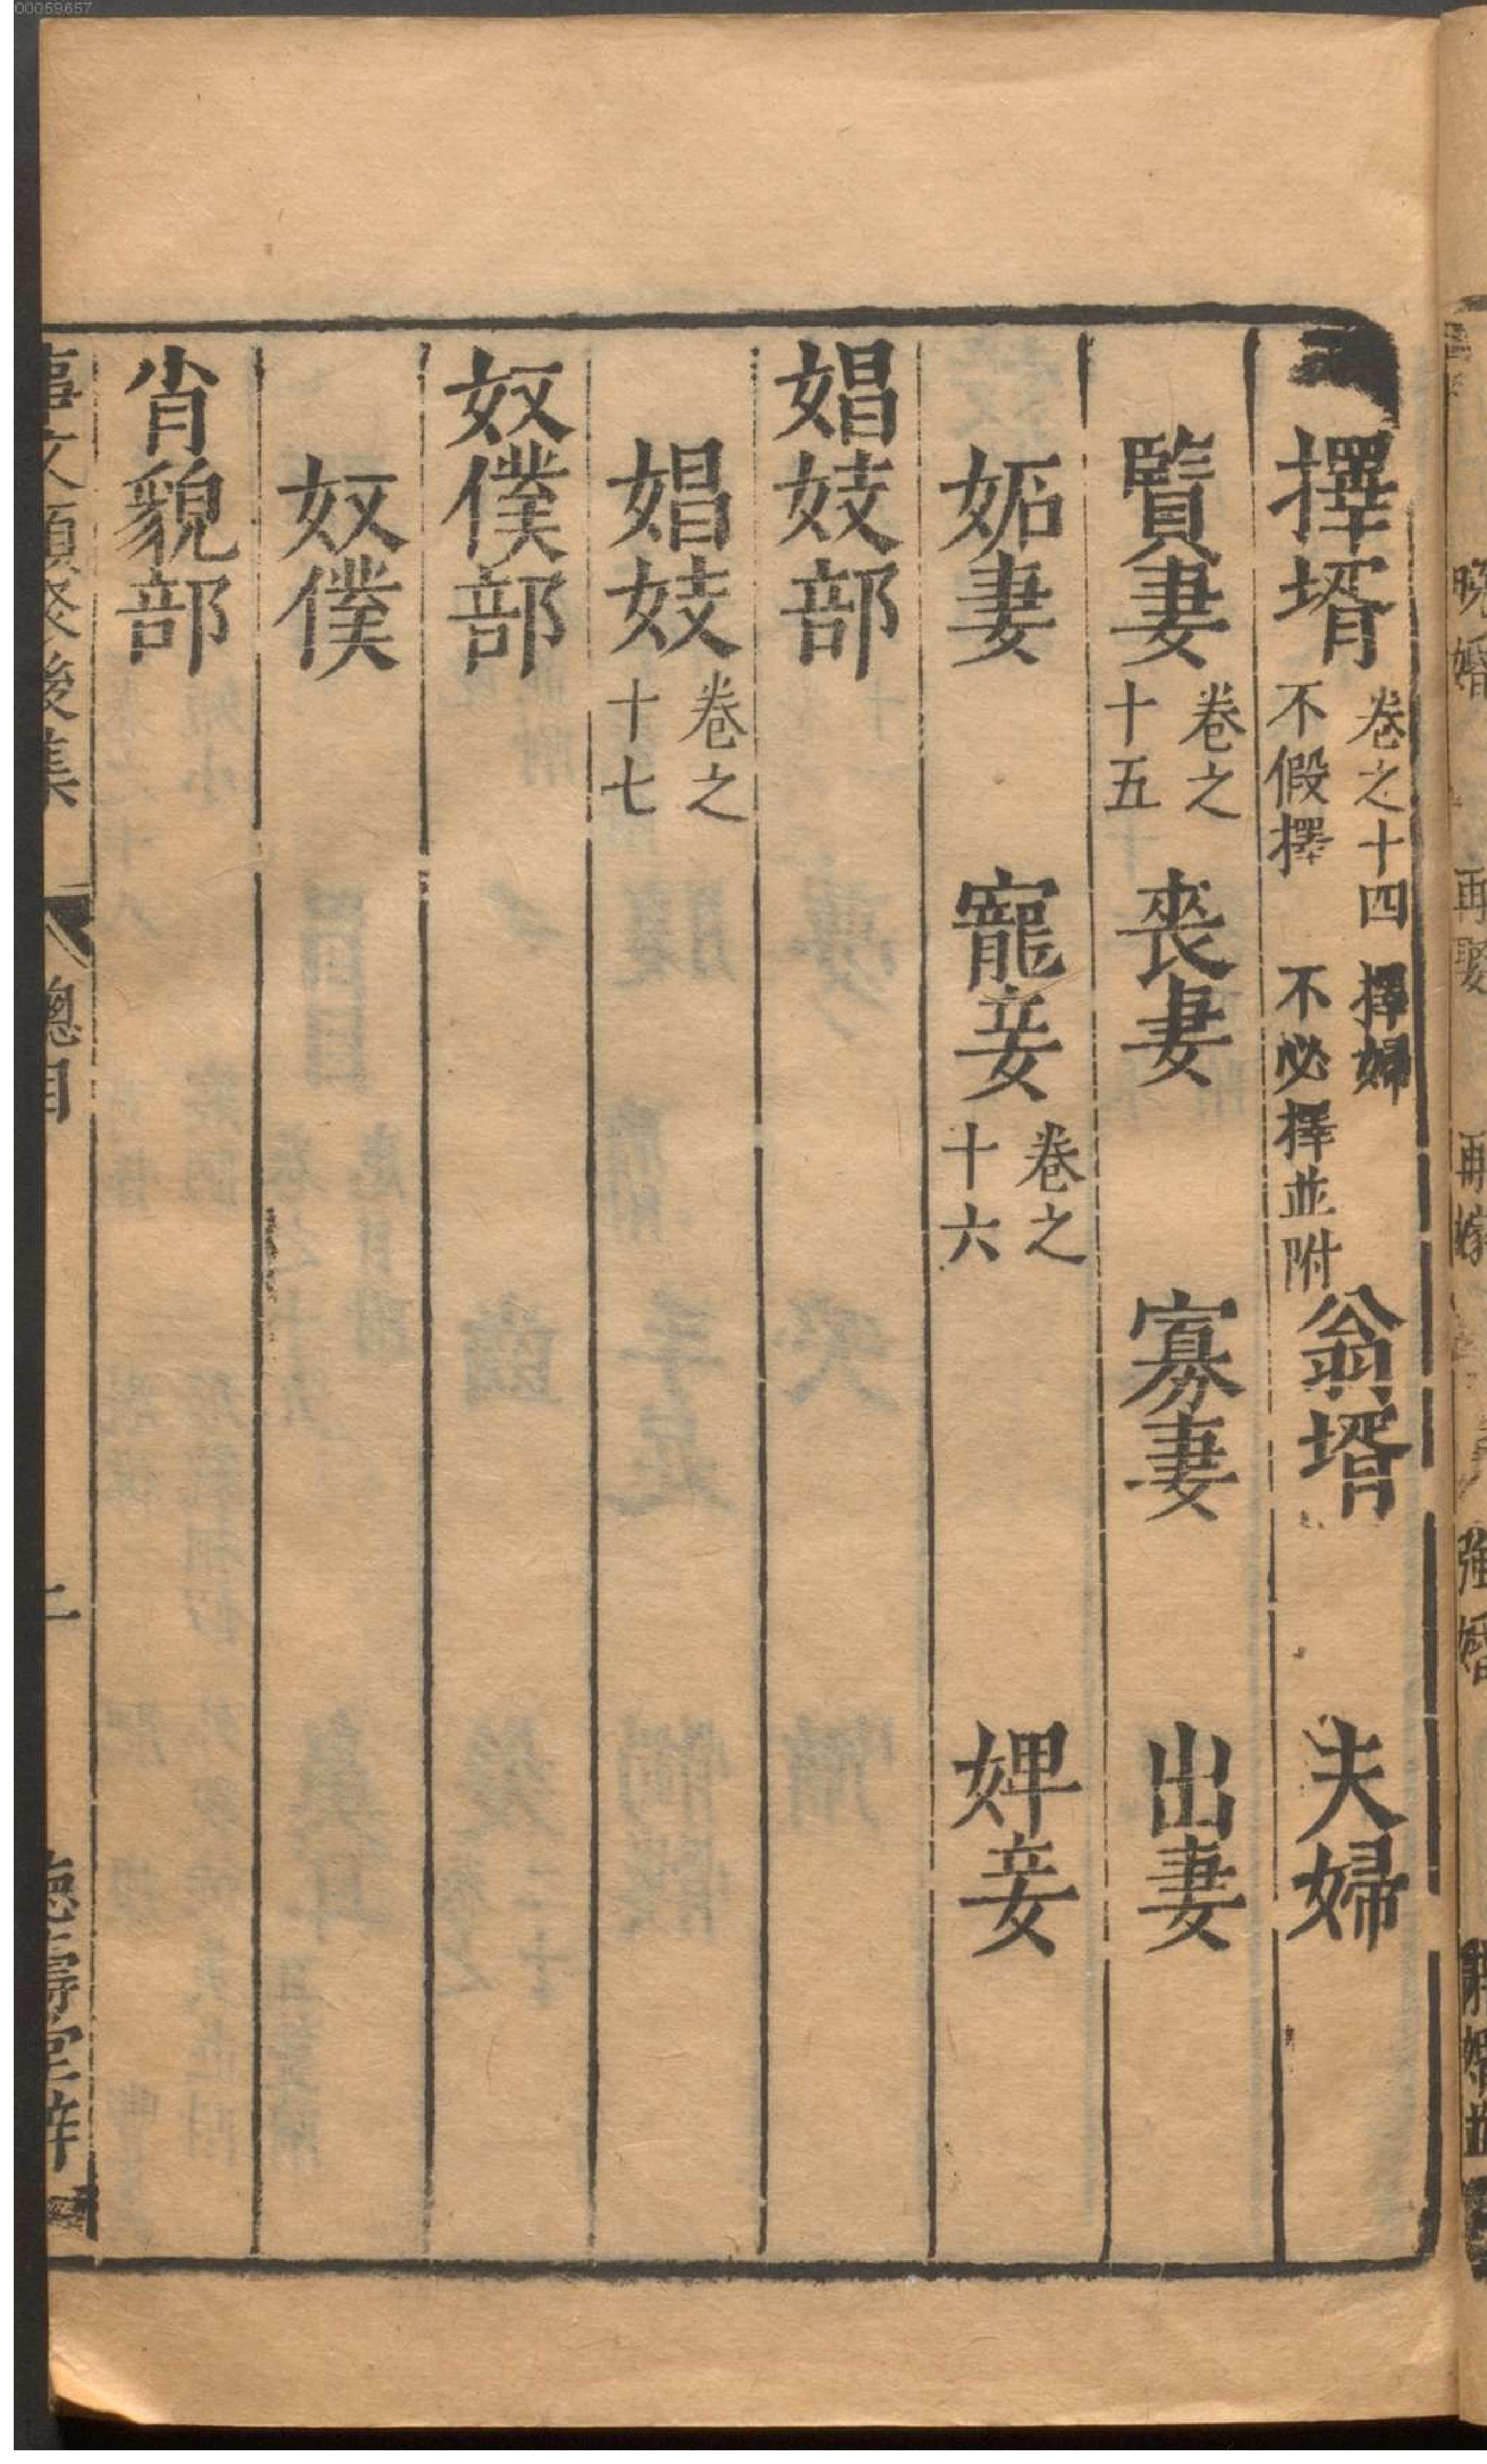 00059657
擇壻 卷之十四 擇婦 不假擇 不必擇並附 翁壻 夫婦
賢妻 卷之十五 喪妻 寡妻 出妻
妬妻 寵妾 卷之十六 婢妾
娼妓部
娼妓 卷之十七
奴僕部
奴僕
肖貌部
事文類聚後集 總目 二 德壽堂梓
晚婚 再娶 再嫁 強婚